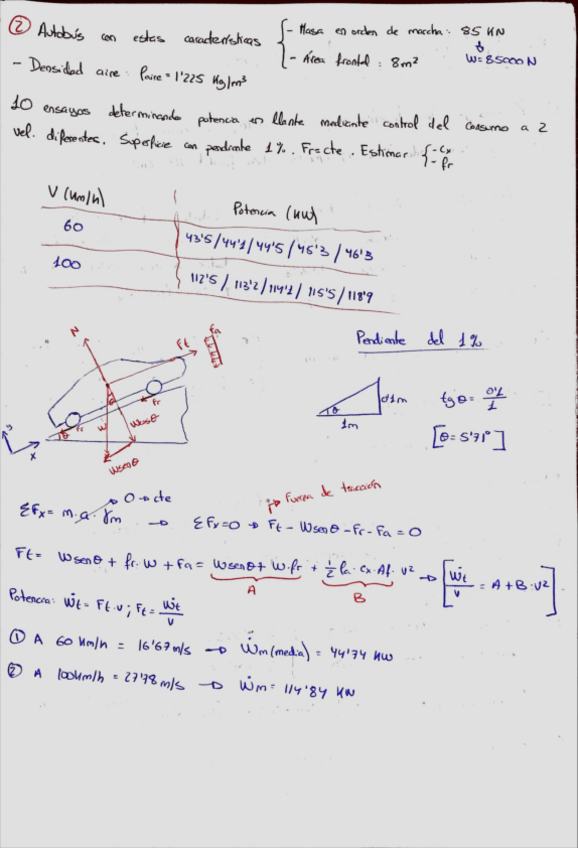 ② Autobús con estas características { - Masa en orden de marcha: 85 KN
↓
W=85000N
- Área frontal: 8m²
- Densidad aire: ρaire=1'225 Kg/m³
10 ensayos determinando potencia en llanta mediante control del consumo a 2
vel. diferentes. Superficie con pendiente 1%. Fr=cte. Estimar { -Cx
-fr
V (Km/h) Potencia (KW)
60 43'5/44'1/44'5/45'3/46'3
100 112'5/113'2/114'1/115'5/118'9
N Ft Fa
θ Fr
θ Fr W Wcosθ
Wsenθ
y x
Pendiente del 1%
θ 0'1m
1m
tgθ = 0'1/1
[θ=5'71°]
ΣFx = m·a·γm 0→cte → ΣFx=0 → Ft - Wsenθ - Fr - Fa = 0
Fuerza de tracción
Ft = Wsenθ + fr·W + Fa = Wsenθ + W·fr + ½ρa·Cx·Af·v² → [Ẇt/v = A + B·v²]
A B
Potencia: Ẇt = Ft·v ; Ft = Ẇt/v
① A 60 Km/h = 16'67m/s → Ẇm(media) = 44'74 KW
② A 100Km/h = 27'78 m/s → Ẇm = 114'84 KW